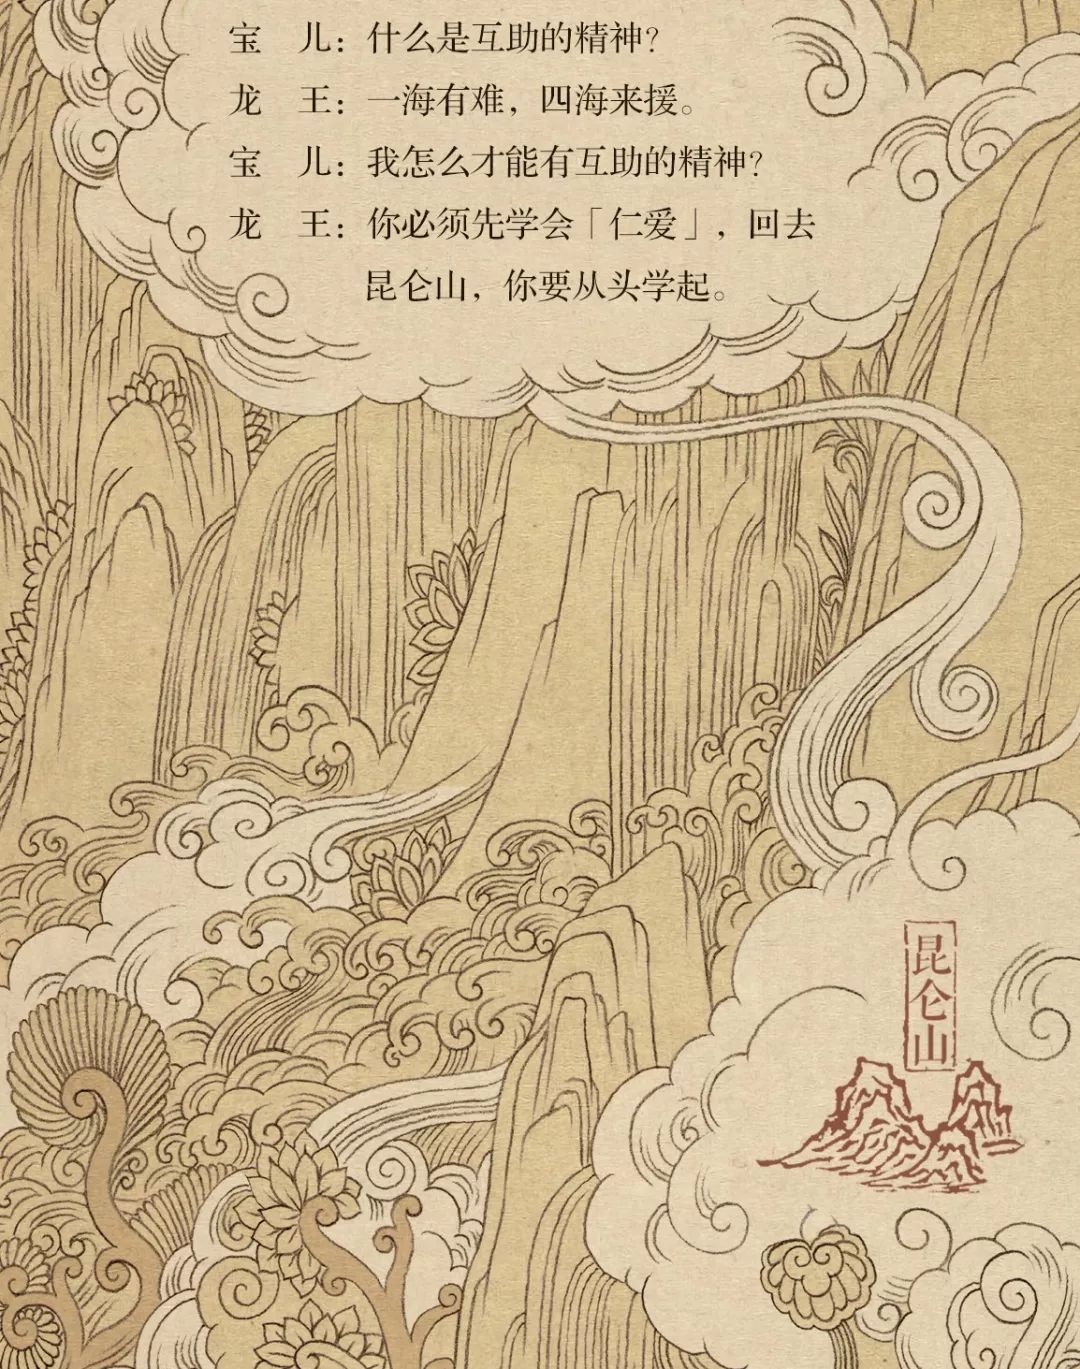 宝　儿：什么是互助的精神？
龙　王：一海有难，四海来援。
宝　儿：我怎么才能有互助的精神？
龙　王：你必须先学会「仁爱」，回去
昆仑山，你要从头学起。
昆仑山